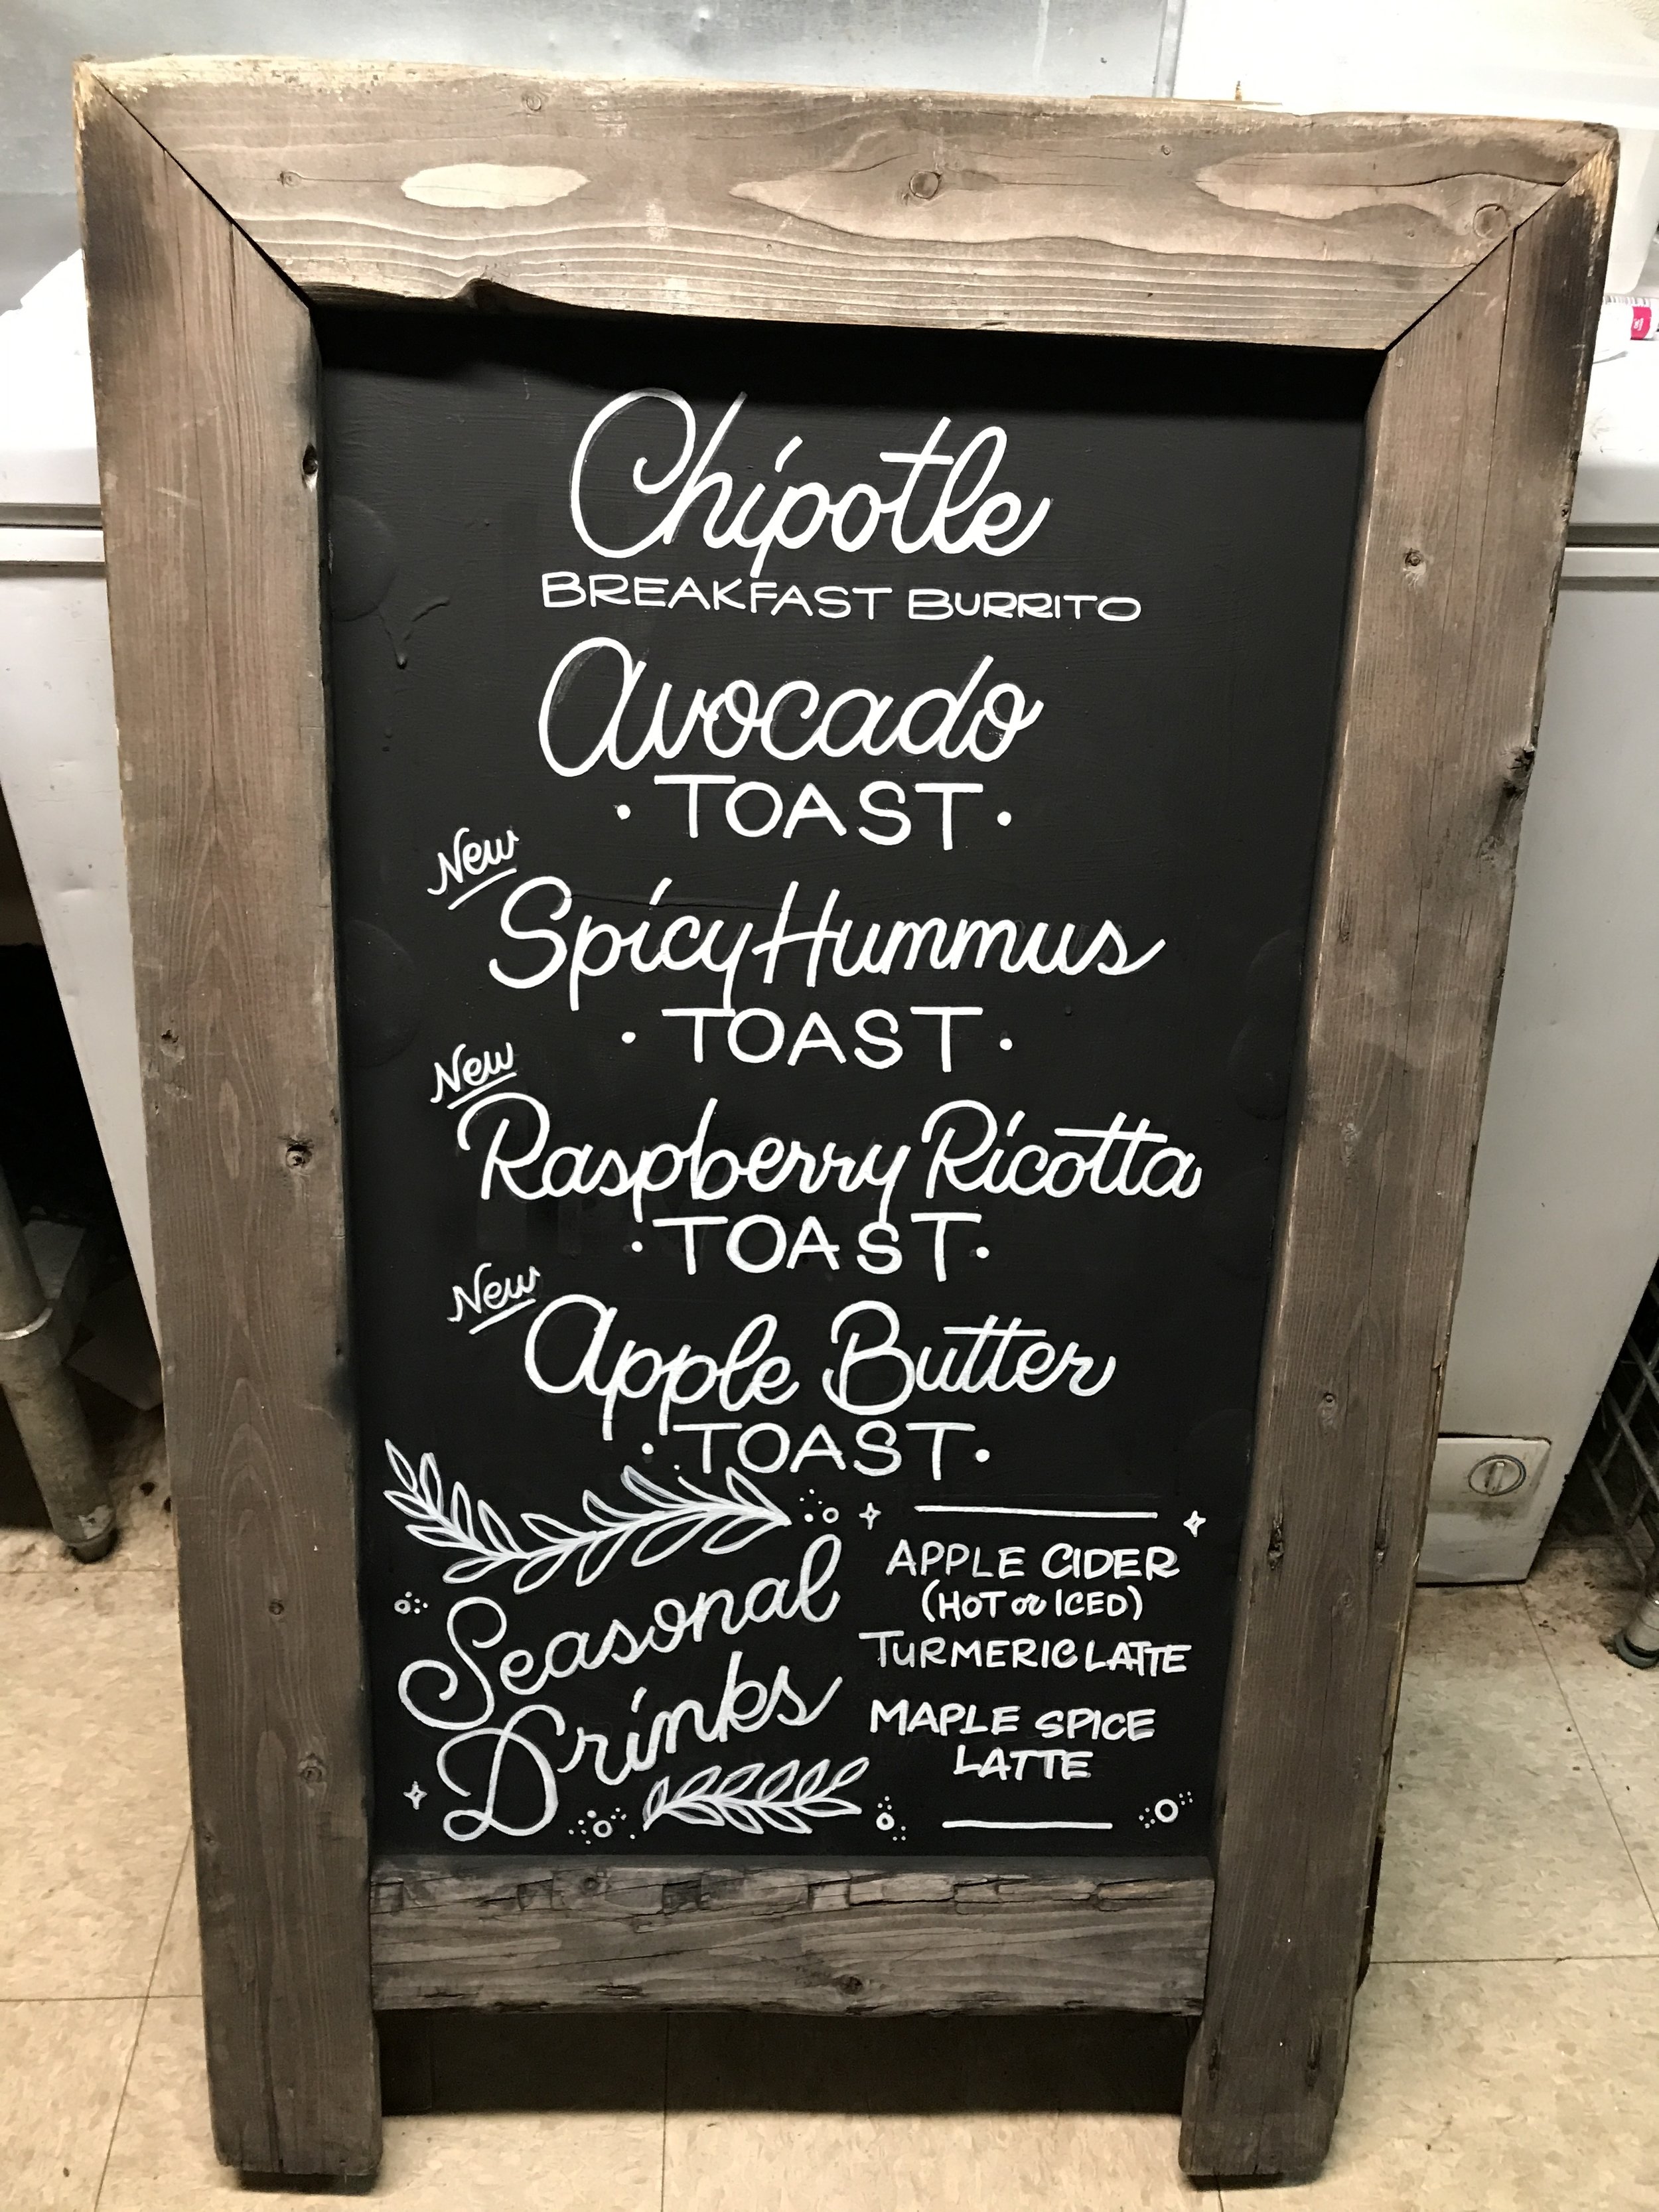 Chipotle
BREAKFAST BURRITO
Avocado
• TOAST •
New
Spicy Hummus
• TOAST •
New
Raspberry Ricotta
• TOAST •
New
Apple Butter
• TOAST •
Seasonal
Drinks
APPLE CIDER
(HOT or ICED)
TURMERIC LATTE
MAPLE SPICE
LATTE